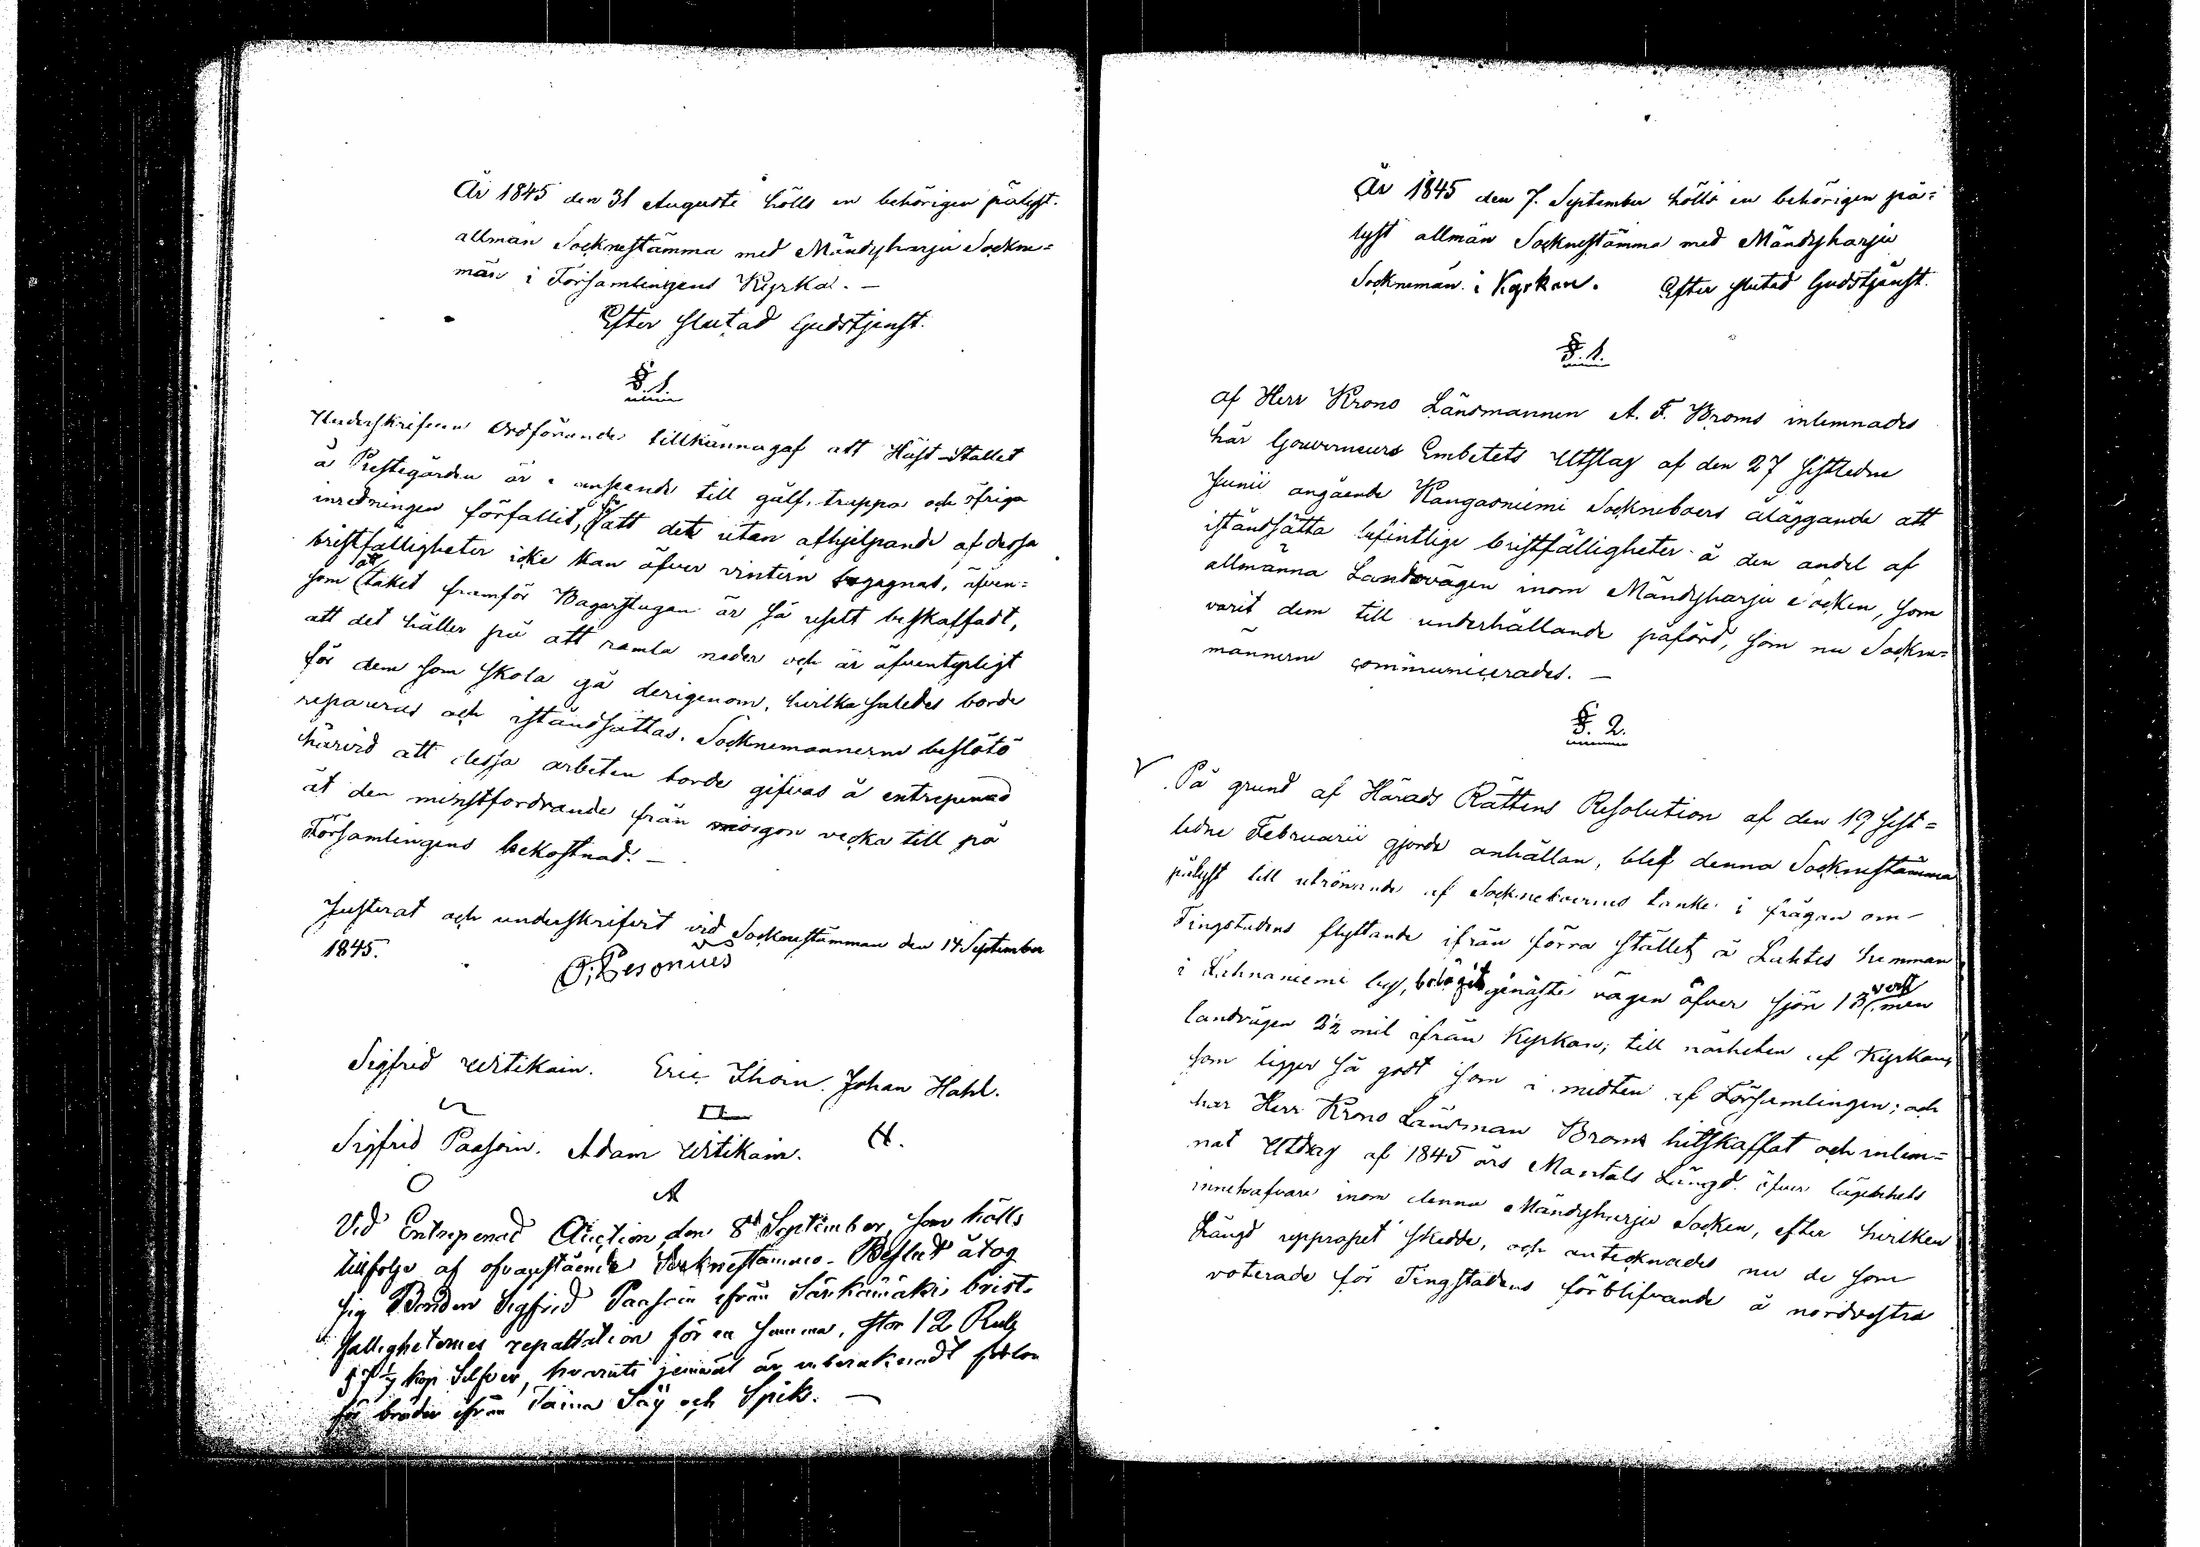 År 1845 den 31 Augusti hölls en behörigen pålyst.
allmän Socknestämma med Mändyharju Sockne=
män i Församlingens Kyrka. —
Efter slutad Gudstjenst.
§. 1.
Underskrifven Ordförande tillkännagaf att Häst-Stallet
å Prestegården är i anseende till gålf, trappa och öfriga
inredningen förfallit, så att det utan afhjelpande af dessa
bristfälligheter icke kan öfver vintern begagnas, äfven=
som att taket framför Bagarstugan är så uselt beskaffadt,
att det håller på att ramla neder och är äfventyrligt
för dem som skola gå derigenom, hvilka således borde
repareras och iståndsättas. Socknemännerne beslöto
härvid att dessa arbeten borde gifvas å entreprenad
åt den minstfordrande från morgon vecka till på
Församlingens bekostnad. —
Justerat och underskrifvit vid Socknestämman den 14 September
1845.
Sigfrid Utikain. Eric Ihoin. Johan Hahl.
Sigfrid Paasoin. Adam Utikain. H.
A
Vid Entrepenad Auction den 8de September, som hölls
tillfölje af ofvanstående Socknestämmo-Beslut åtog
sig Bonden Sigfrid Paasoin ifrån Särkämäki brist-
fälligheternes reparation för en summa, stor 12 Rub
kop Silfver, hvaruti jemväl är inberäknadt
för bräder ifrån Taina Såg och Spik. —
År 1845 den 7. September hölls en behörigen på=
lyst allmän Socknestämma med Mändyharju
Socknemän i Kyrkan. Efter slutad Gudstjenst.
§. 1.
af Herr Krono Länsmannen A. F. Broms inlemnades
här Gouverneurs Embetets Utslag af den 27 sistledne
Junii angående Kangasniemi Sockneboers åläggande att
iståndsätta befintlige bristfälligheter å den andel af
allmänna Landsvägen inom Mändyharju Socken, som
varit dem till underhållande påförd, som nu Sockne=
männerne communicerades. —
§. 2.
På grund af Härads Rättens Resolution af den 19 sist=
ledne Februarii gjorda anhållan, blef denna Socknestämma
pålyst till utrönande af Sockneboernes tanke i frågan om
Tingstadens flyttande ifrån förra stället å Lahtes hemman
i Lahnaniemi by, belägit genaste vägen öfver sjön 13 verst men
landvägen 2½ mil ifrån Kyrkan; till närheten af Kyrkan,
som ligger så godt som i midten af Församlingen; och
har Herr Krono Länsman Broms hitskaffat och inlem=
nat Utdrag af 1845 års Mantals Längd öfver lägenhets
innehafvare inom denna Mändyharju Socken, efter hvilken
Längd uppropet skedde, och antecknades nu de som
voterade för Tingstadens förblifvande å nordvestra